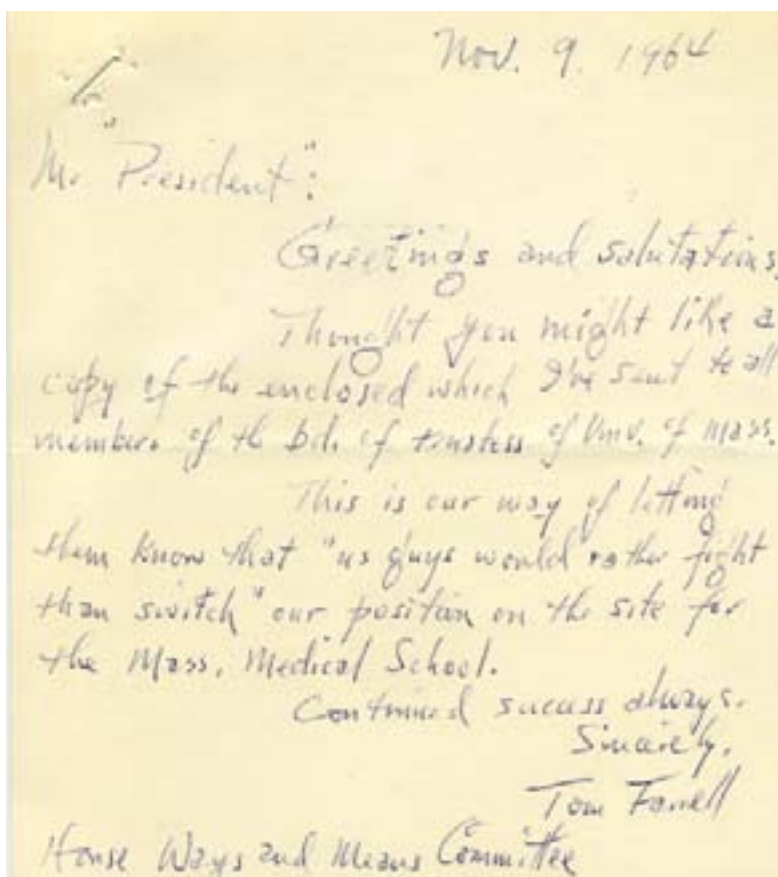 Nov. 9. 1964
Mr. "President":
Greetings and salutations,
Thought you might like a
copy of the enclosed which I've sent to all
members of the bd. of trustess of Univ. of Mass.
This is our way of letting
them know that "us guys would rather fight
than switch" our position on the site for
the Mass. Medical School.
Continued success always.
Sincerely,
Tom Farrell
House Ways and Means Committee